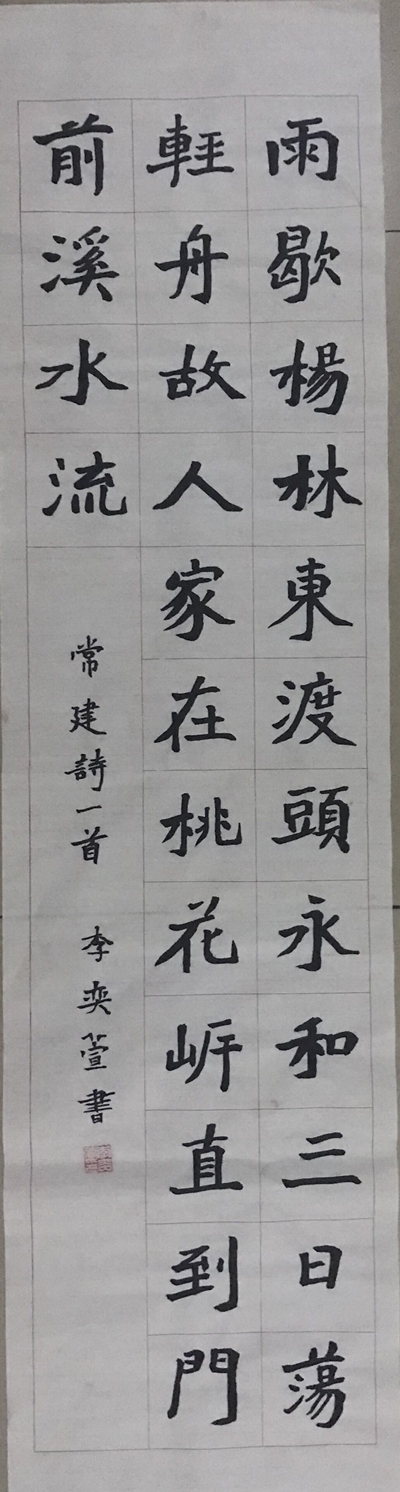 雨歇楊林東渡頭永和三日蕩
輕舟故人家在桃花岍直到門
前溪水流
常建詩一首 李奕萱書